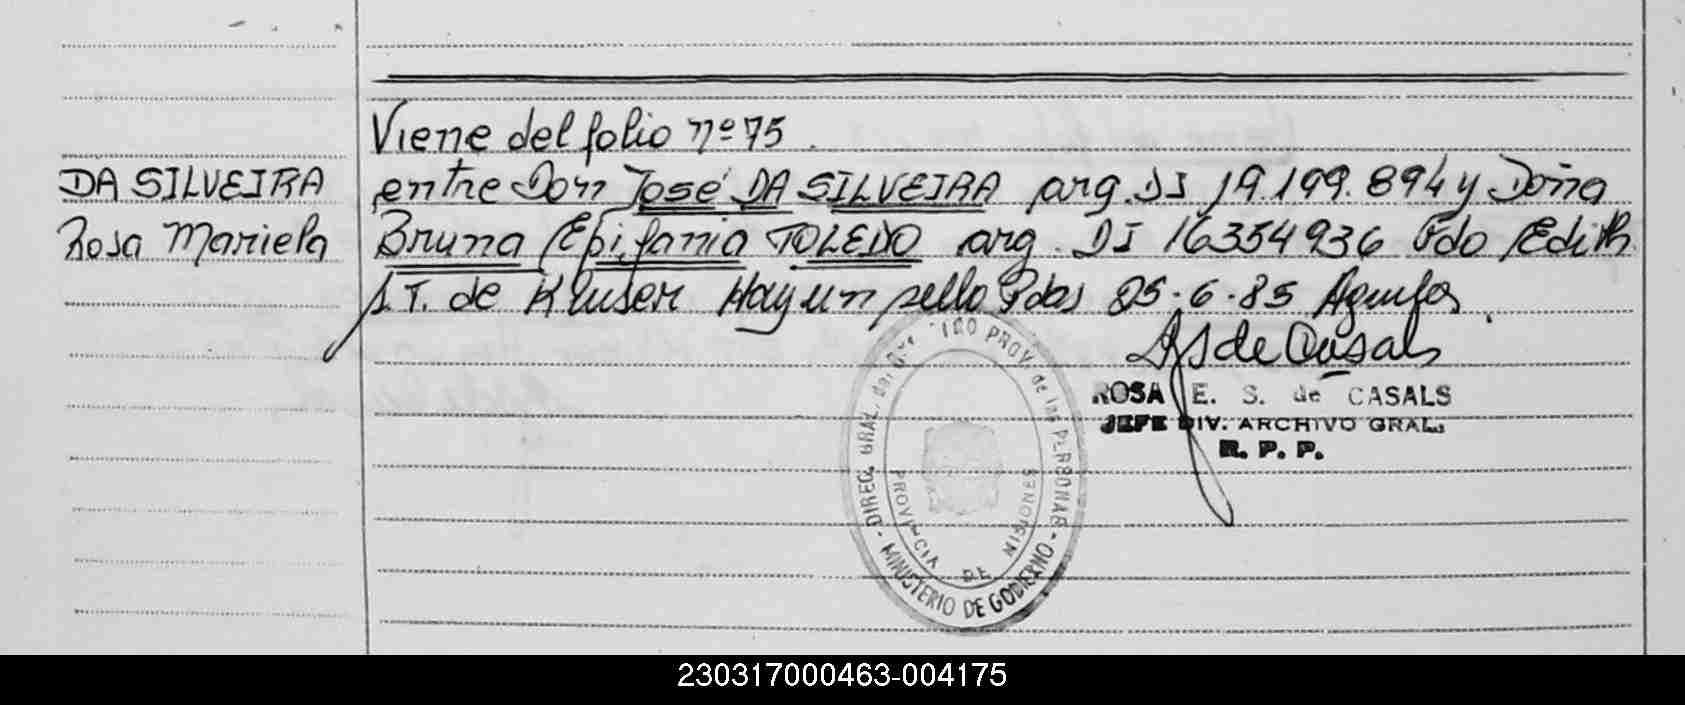 Viene del folio nº 75
DA SILVEIRA
Rosa Mariela
entre Don José DA SILVEIRA arg. DI 19.199.894 y Doña
Bruna Epifania TOLEDO arg. DI 16354936 Fdo Edith
S.T. de Kruser Hay un sello Pdas 25.6.85
de Casals
ROSA E. S. de CASALS
JEFE DIV. ARCHIVO GRAL.
R. P. P.
DIREC. GRAL. del PROV. de las PERSONAS
PROVINCIA DE MISIONES
- MINISTERIO DE GOBIERNO -
230317000463-004175